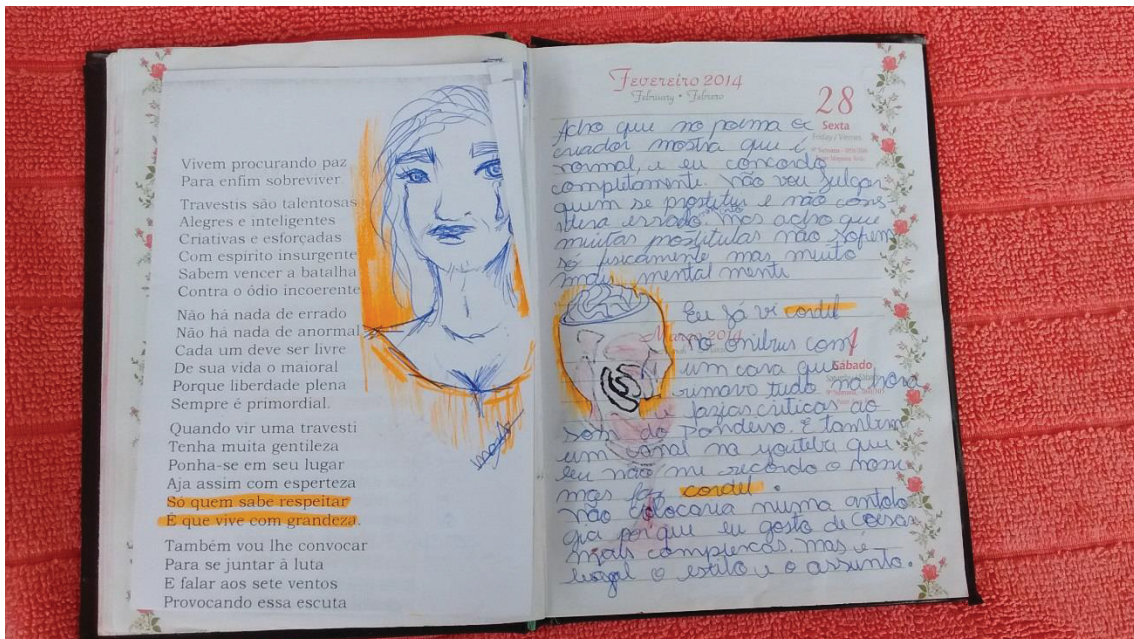 Vivem procurando paz
Para enfim sobreviver
Travestis são talentosas
Alegres e inteligentes
Criativas e esforçadas
Com espírito insurgente
Sabem vencer a batalha
Contra o ódio incoerente
Não há nada de errado
Não há nada de anormal
Cada um deve ser livre
De sua vida o maioral
Porque liberdade plena
Sempre é primordial.
Quando vir uma travesti
Tenha muita gentileza
Ponha-se em seu lugar
Aja assim com esperteza
Só quem sabe respeitar
É que vive com grandeza.
Também vou lhe convocar
Para se juntar à luta
E falar aos sete ventos
Provocando essa escuta
Fevereiro 2014
February • Febrero
28
Sexta
Friday / Viernes
Acho que no poema o
criador mostra que é
normal, e eu concordo
completamente. não vou julgar
quem se prostitui e não cons
idera errado. mas acho que
muitas prostitutas não sofrem
só fisicamente mas muito
mais mental mente
Eu já vi cordel
Março 2014
1
Sábado
no onibus com
um cara que
rimava tudo na hora
e fazias criticas ao
som do pandeiro. E também
um canal no youtube que
eu não me recordo o nome
mas faz cordel.
não colocaria numa antolo
gia por que eu gosto de coisas
mais complexas. mas é
legal o estilo e o assunto.